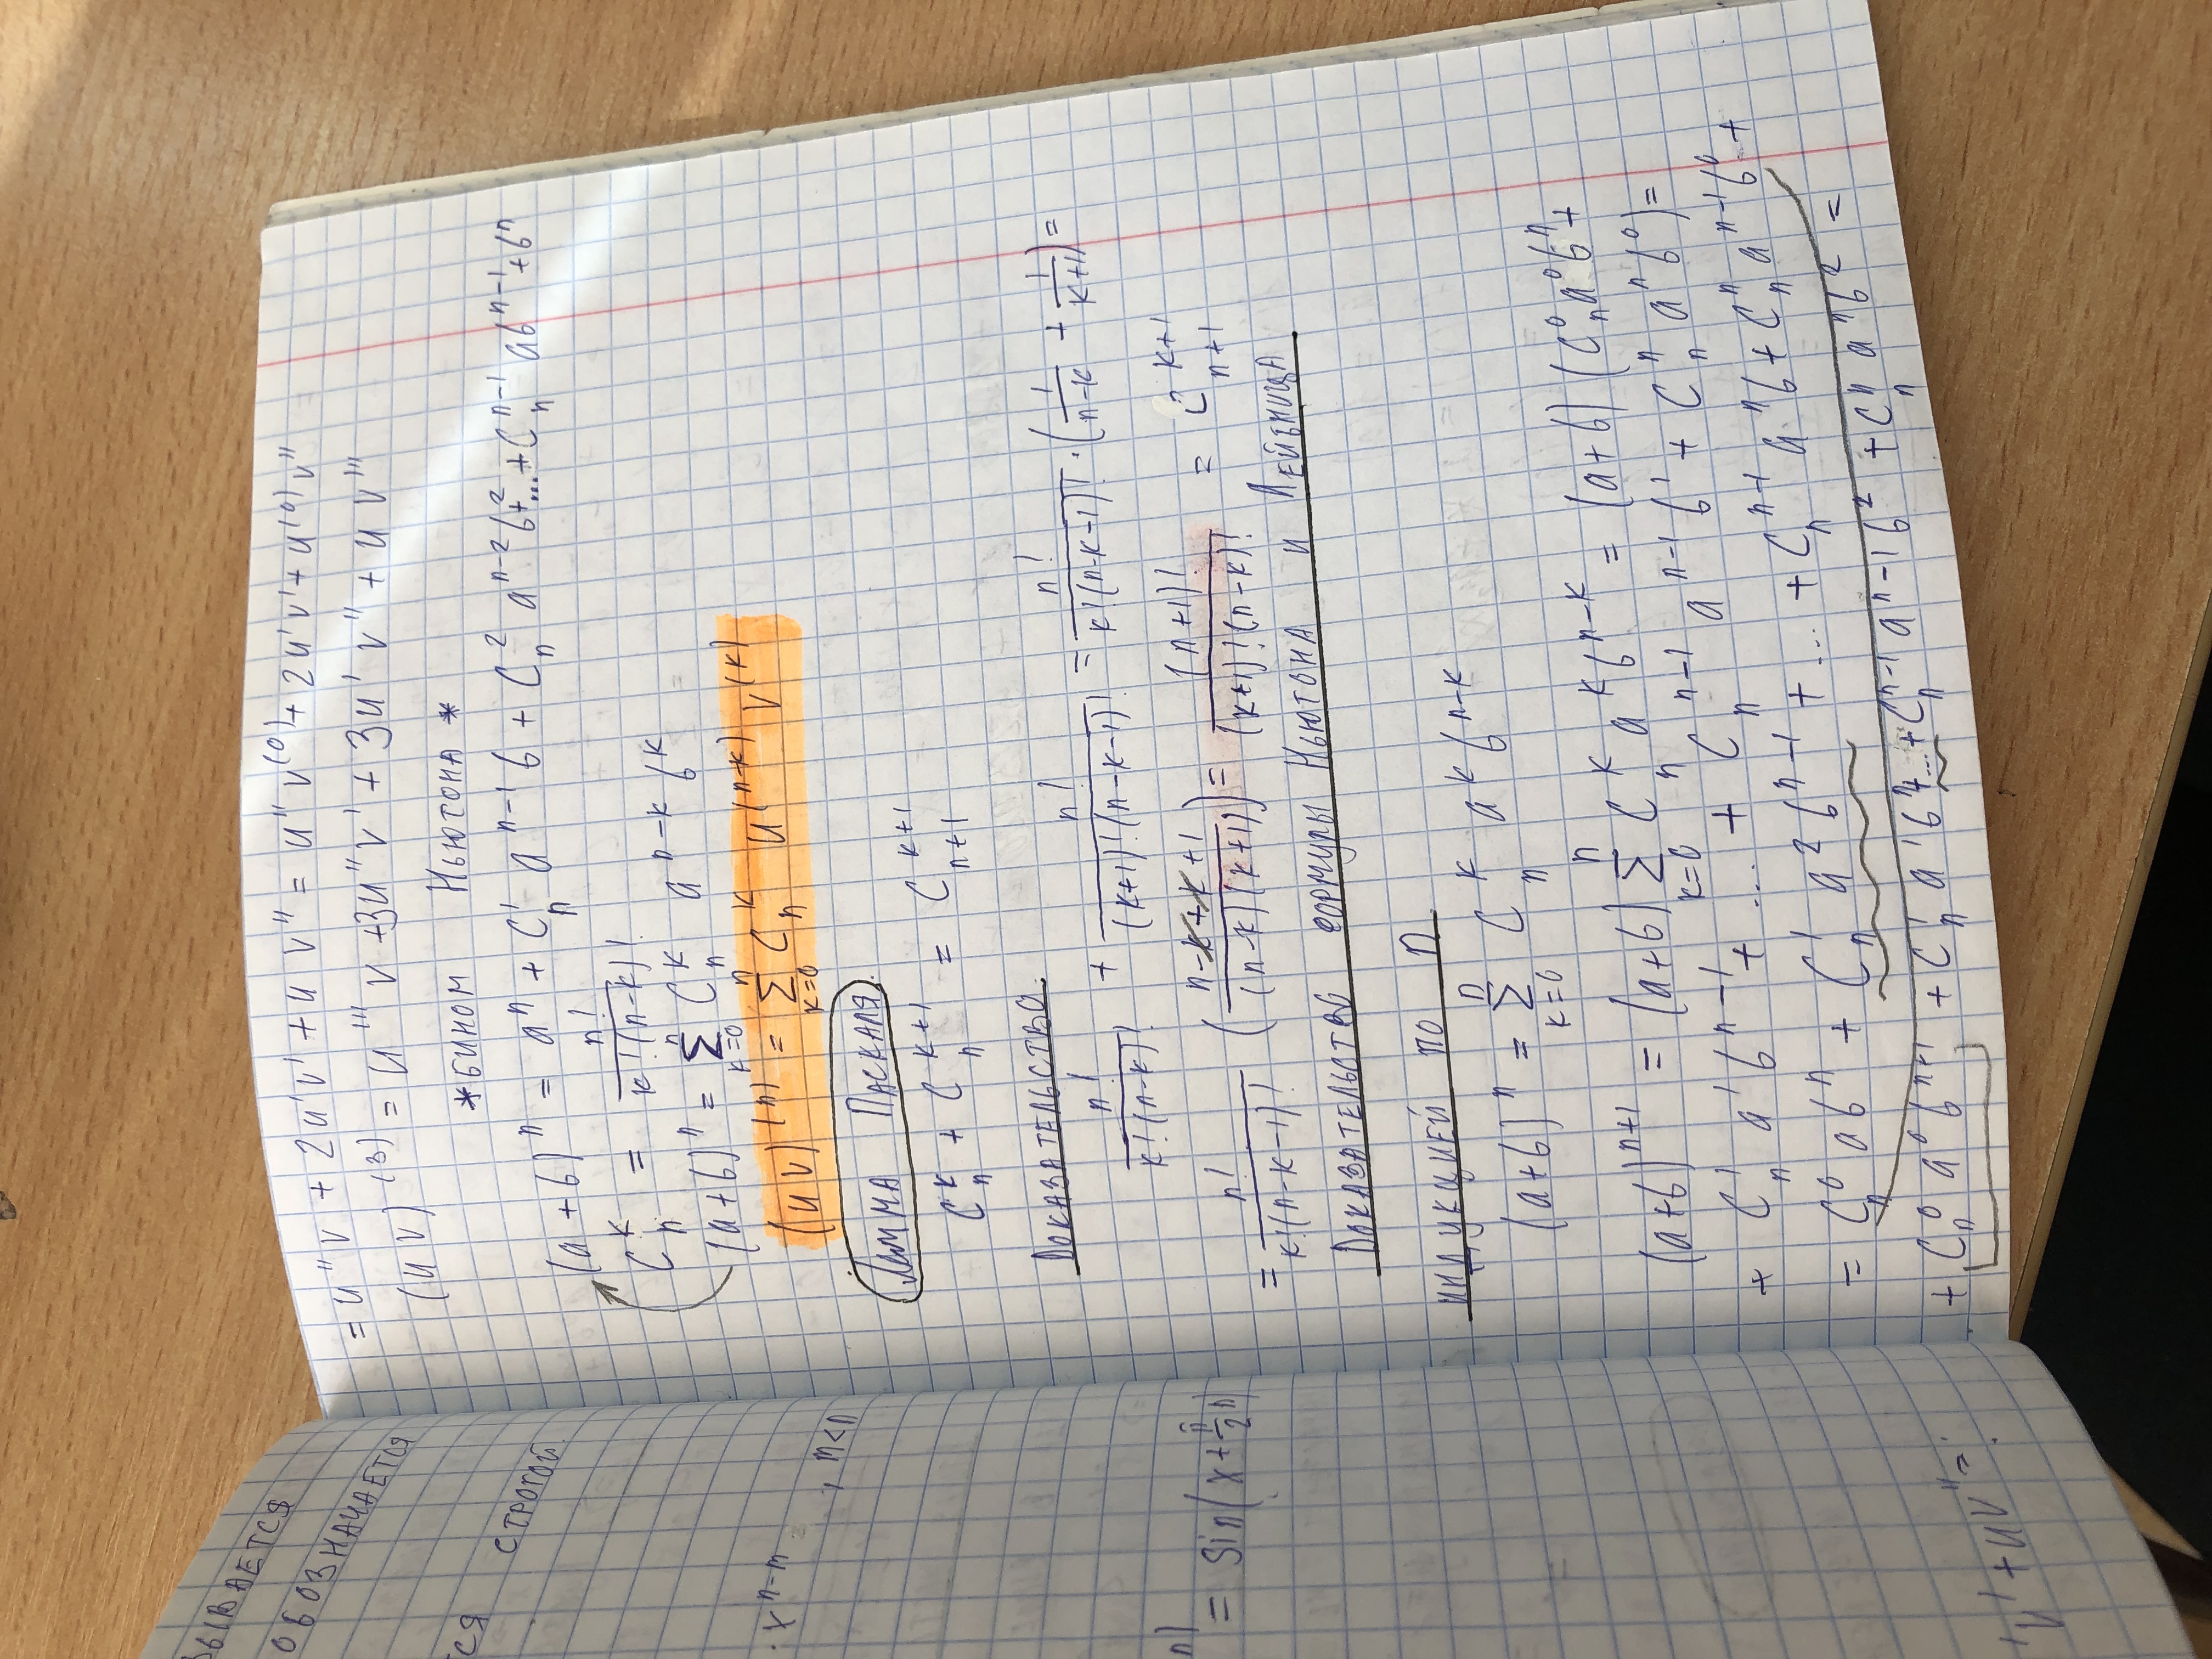 ЗЫВАЕТСЯ
ОБОЗНАЧАЕТСЯ
ТСЯ СТРОГОЙ.
· x^{n-m}, m<n
n) = Sin(x + π/2 n)
V' + UV'' =
= U''V + 2U'V' + U V'' = U'' V^{(0)} + 2U'V' + U^{(0)} V''
(UV)^{(3)} = U''' V + 3U''V' + 3U' V'' + U V'''
*БИНОМ НЬЮТОНА*
(a+b)^n = a^n + C_n^1 a^{n-1} b + C_n^2 a^{n-2} b^2 + ... + C_n^{n-1} a b^{n-1} + b^n
C_n^k = n! / k!(n-k)!
(a+b)^n = Σ_{k=0}^n C_n^k a^{n-k} b^k
(UV)^{(n)} = Σ_{k=0}^n C_n^k U^{(n-k)} V^{(k)}
ЛЕММА ПАСКАЛЯ.
C_n^k + C_n^{k+1} = C_{n+1}^{k+1}
ДОКАЗАТЕЛЬСТВО.
n! / k!(n-k)! + n! / (k+1)!(n-k-1)! = n! / k!(n-k-1)! · (1/(n-k) + 1/(k+1)) =
= n! / k!(n-k-1)! ((n-k+k+1) / (n-k)(k+1)) = (n+1)! / (k+1)!(n-k)! = C_{n+1}^{k+1}
ДОКАЗАТЕЛЬСТВО ФОРМУЛЫ НЬЮТОНА И ЛЕЙБНИЦА
ИНДУКЦИЕЙ ПО n
(a+b)^n = Σ_{k=0}^n C_n^k a^k b^{n-k}
(a+b)^{n+1} = (a+b) Σ_{k=0}^n C_n^k a^k b^{n-k} = (a+b) (C_n^0 a^0 b^n +
+ C_n^1 a^1 b^{n-1} + ... + C_n^{n-1} a^{n-1} b^1 + C_n^n a^n b^0) =
= C_n^0 a b^n + C_n^1 a^2 b^{n-1} + ... + C_n^{n-1} a^n b + C_n^n a^{n-1} b^0 +
+ C_n^0 a^0 b^{n+1} + C_n^1 a^1 b^n + ... + C_n^{n-1} a^{n-1} b^2 + C_n^n a^n b^2 =